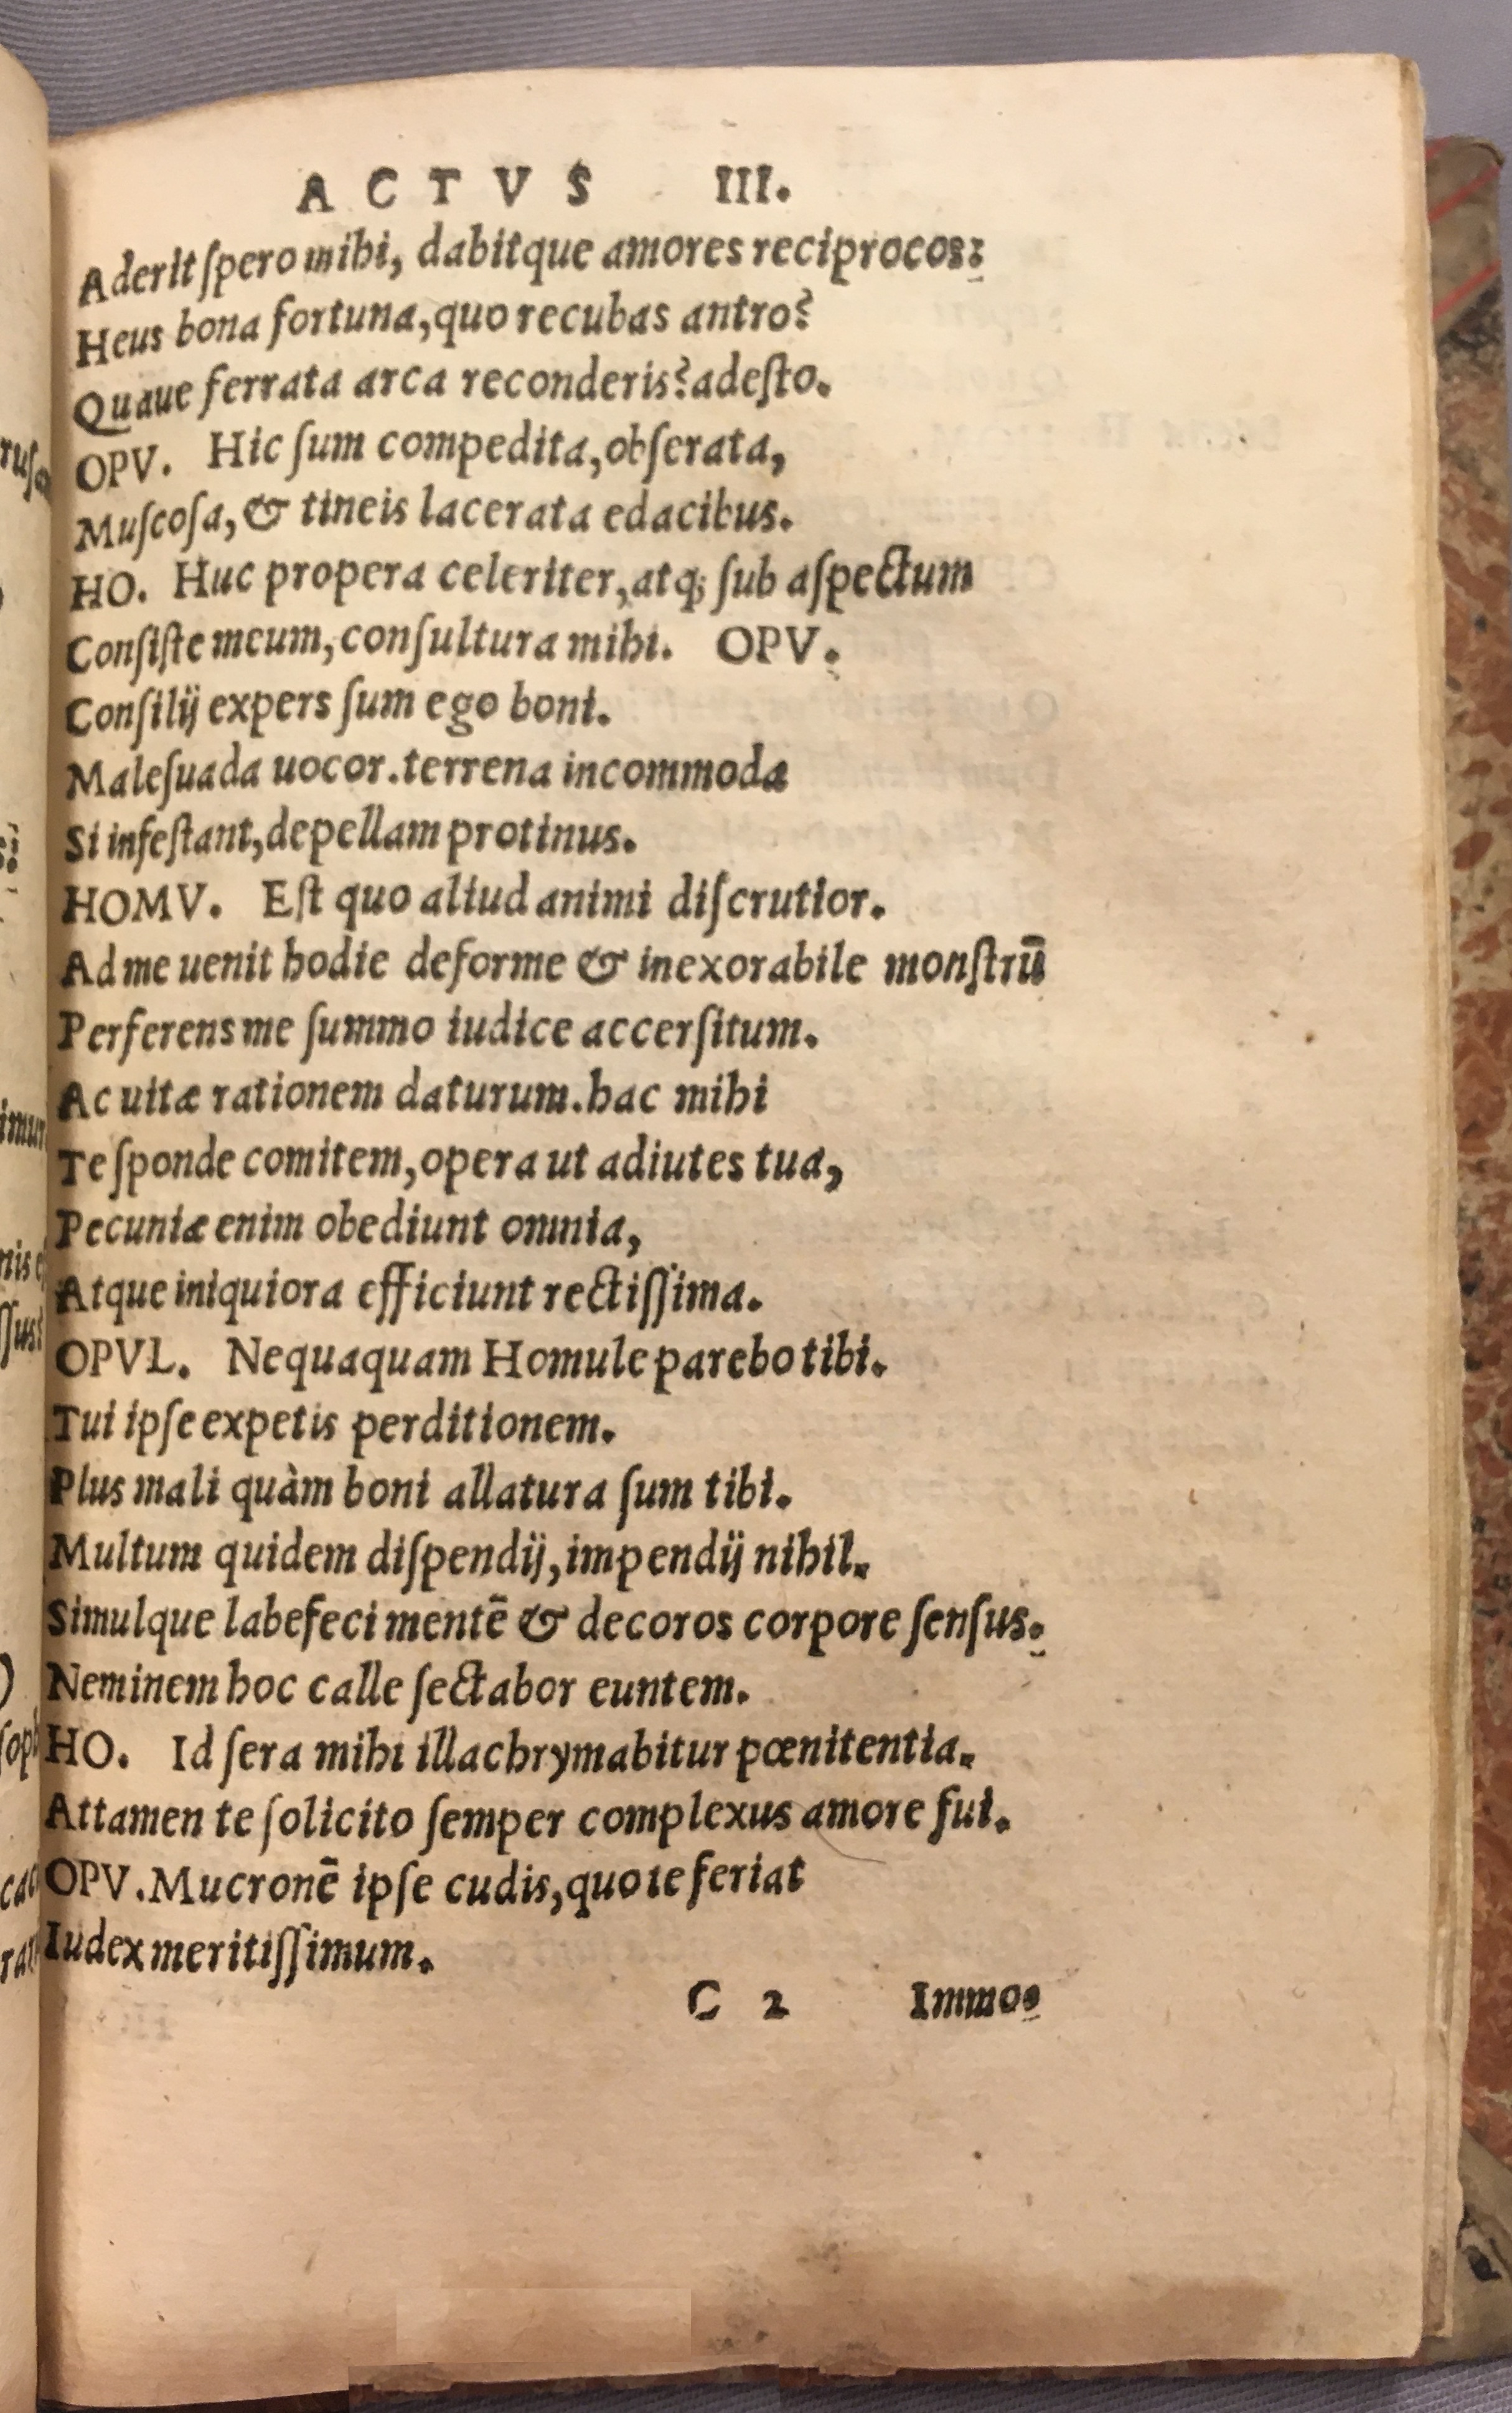 ACTVS III.
Aderit ſpero mihi, dabitque amores reciprocos:
Heus bona fortuna, quo recubas antro?
Quaue ferrata arca reconderis? adeſto.
OPV. Hic ſum compedita, obſerata,
Muſcoſa, & tineis lacerata edacibus.
HO. Huc propera celeriter, atq; ſub aſpectum
Conſiſte meum, conſultura mihi. OPV.
Conſilij expers ſum ego boni.
Maleſuada uocor. terrena incommoda
Si infeſtant, depellam protinus.
HOMV. Eſt quo aliud animi diſcrutior.
Ad me uenit hodie deforme & inexorabile monſtrū
Perferens me ſummo iudice accerſitum.
Ac uitæ rationem daturum. hac mihi
Te ſponde comitem, opera ut adiutes tua,
Pecuniæ enim obediunt omnia,
Atque iniquiora efficiunt rectiſſima.
OPVL. Nequaquam Homule parebo tibi.
Tui ipſe expetis perditionem.
Plus mali quàm boni allatura ſum tibi.
Multum quidem diſpendij, impendij nihil.
Simulque labefeci mentē & decoros corpore ſenſus.
Neminem hoc calle ſectabor euntem.
HO. Id ſera mihi illachrymabitur pœnitentia.
Attamen te ſolicito ſemper complexus amore fui.
OPV. Mucronē ipſe cudis, quo te feriat
Iudex meritiſſimum.
C 2 Immo